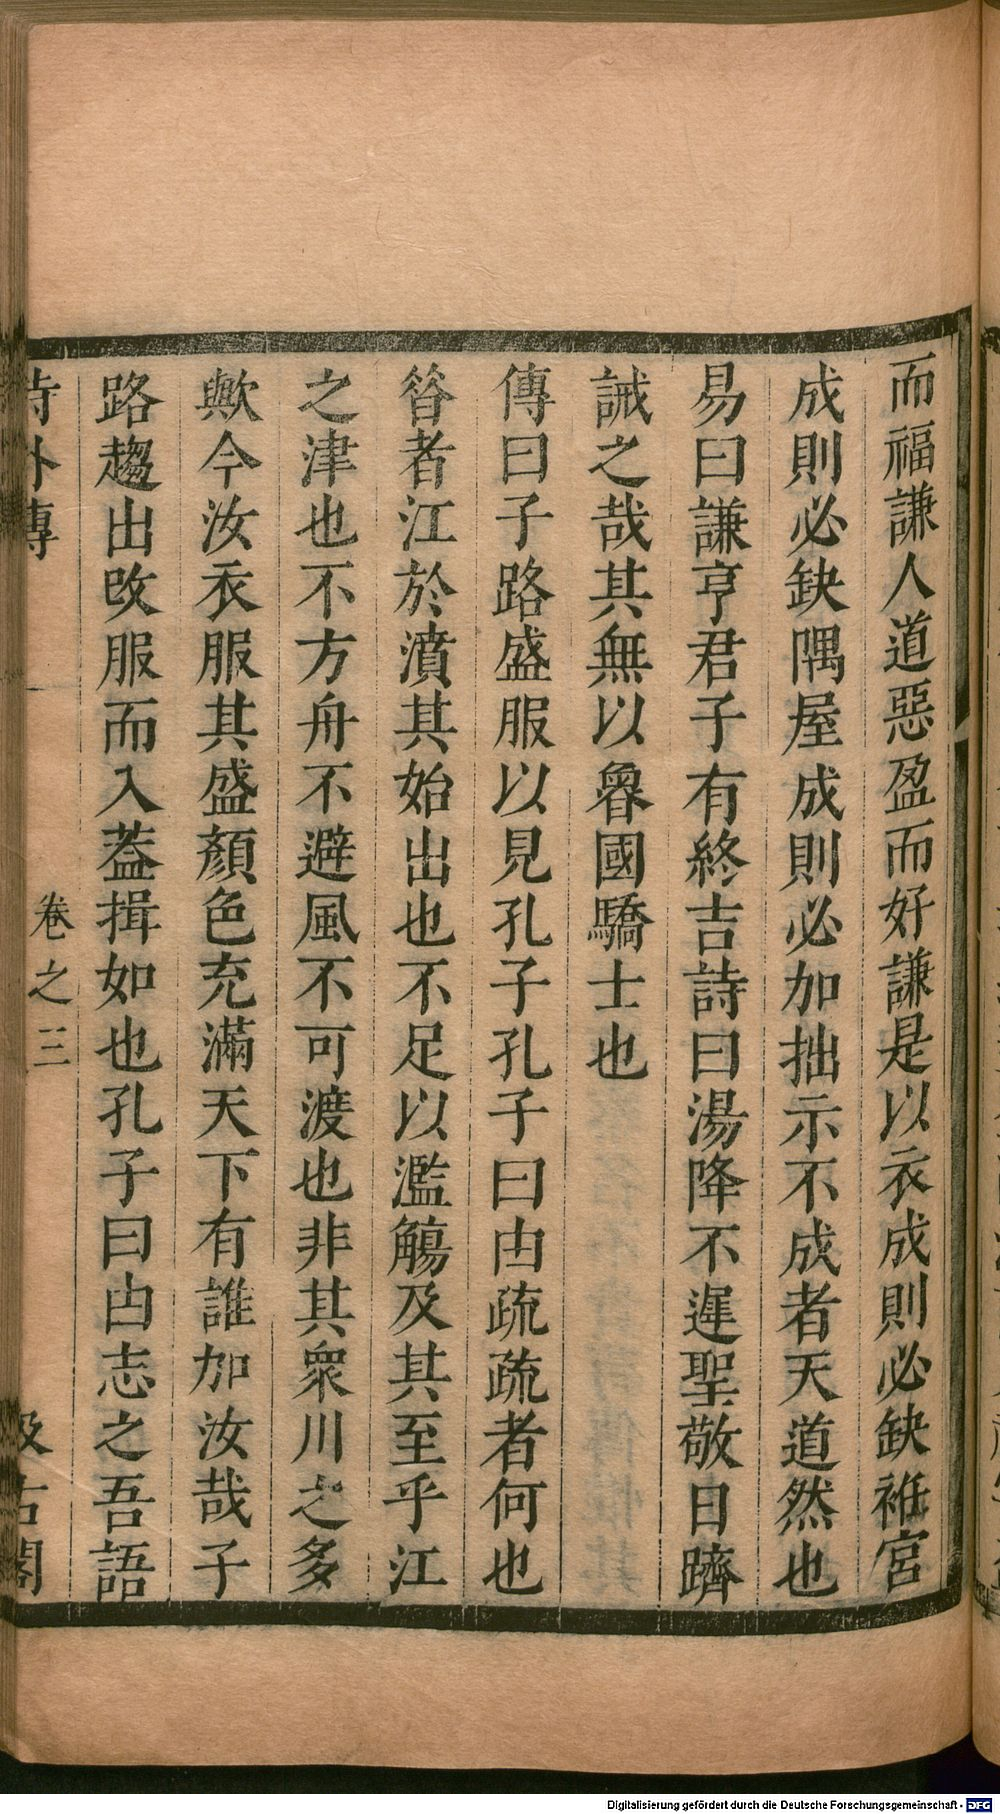 而福謙人道惡盈而好謙是以衣成則必缺袵宮
成則必缺隅屋成則必加拙示不成者天道然也
易曰謙亨君子有終吉詩曰湯降不遲聖敬日躋
誡之哉其無以魯國驕士也
傳曰子路盛服以見孔子孔子曰甴疏疏者何也
昝者江於濆其始出也不足以濫觴及其至乎江
之津也不方舟不避風不可渡也非其衆川之多
歟今汝衣服其盛顏色充滿天下有誰加汝哉子
路趨出改服而入葢揖如也孔子曰甴志之吾語
詩外傳 卷之三 汲古閣
Digitalisierung gefördert durch die Deutsche Forschungsgemeinschaft - DFG